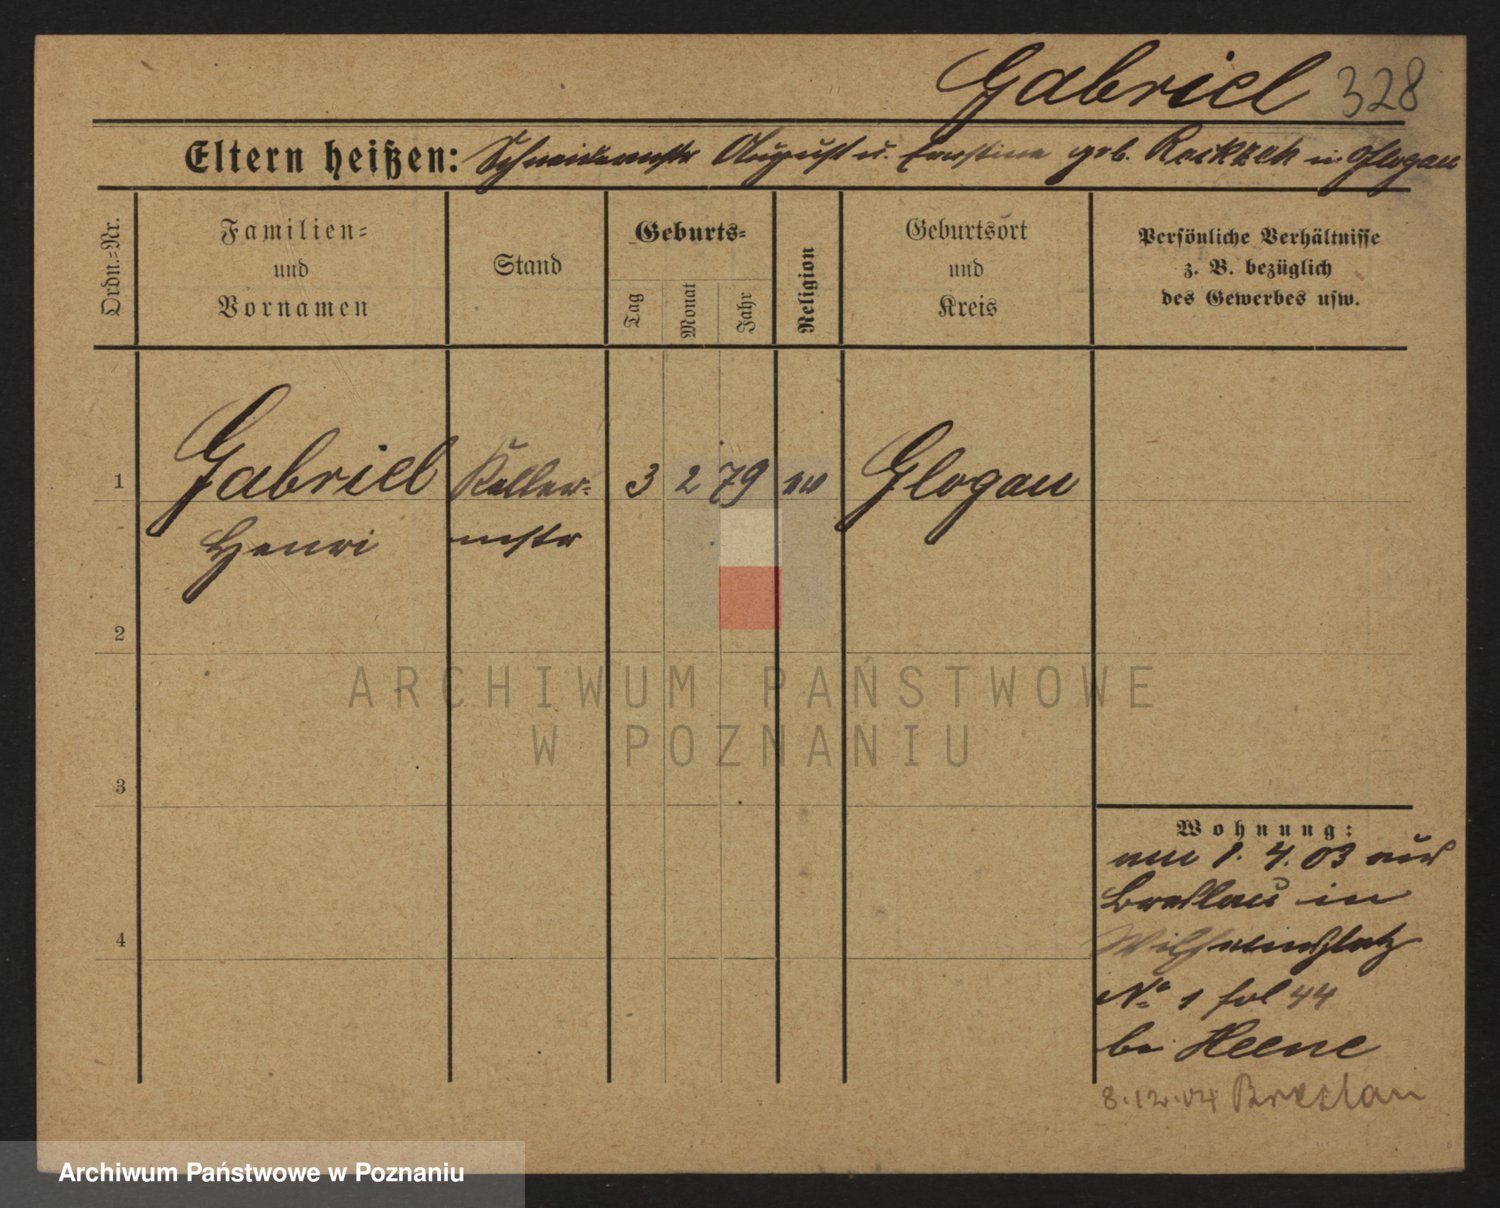 Gabriel 328
Eltern heißen: Schneidermstr August u. Ernstine geb. in Glogau
Ordn.=Nr.
Familien=
und
Vornamen
Stand
Geburts=
Tag
Monat
Jahr
Religion
Geburtsort
und
Kreis
Persönliche Verhältnisse
z. B. bezüglich
des Gewerbes usw.
1 Gabriel Keller= 3 2 79 ev Glogau
Henri mstr
2
ARCHIWUM PAŃSTWOWE
W POZNANIU
3
Wohnung:
4. 03 aus
Breslau in
Wilhelmsplatz
4
No 1 fol 44
bei Heene
8.12.04 Breslau
Archiwum Państwowe w Poznaniu